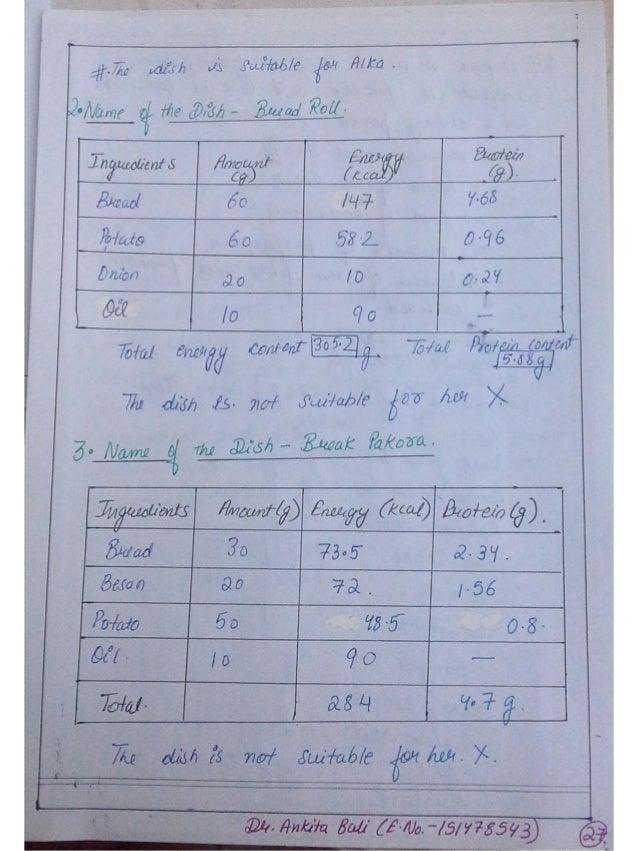 #. The dish is suitable for Alka.
2. Name of the Dish - Bread Roll.
Ingredients Amount (g) Energy (kcal) Protein (g).
Bread 60 147 4.68
Potato 60 58.2 0.96
Onion 20 10 0.24
Oil 10 90 —
Total energy content 305.2 g. Total Protein content 5.88 g
The dish is not suitable for her X.
3. Name of the Dish - Break Pakora.
Ingredients Amount (g) Energy (kcal) Protein (g).
Bread 30 73.5 2.34.
Besan 20 72. 1.56
Potato 50 48.5 0.8.
Oil. 10 90 —
Total. 284 4.7 g.
The dish is not suitable for her. X.
Dr. Ankita Bali (E.No.-151478543) 27